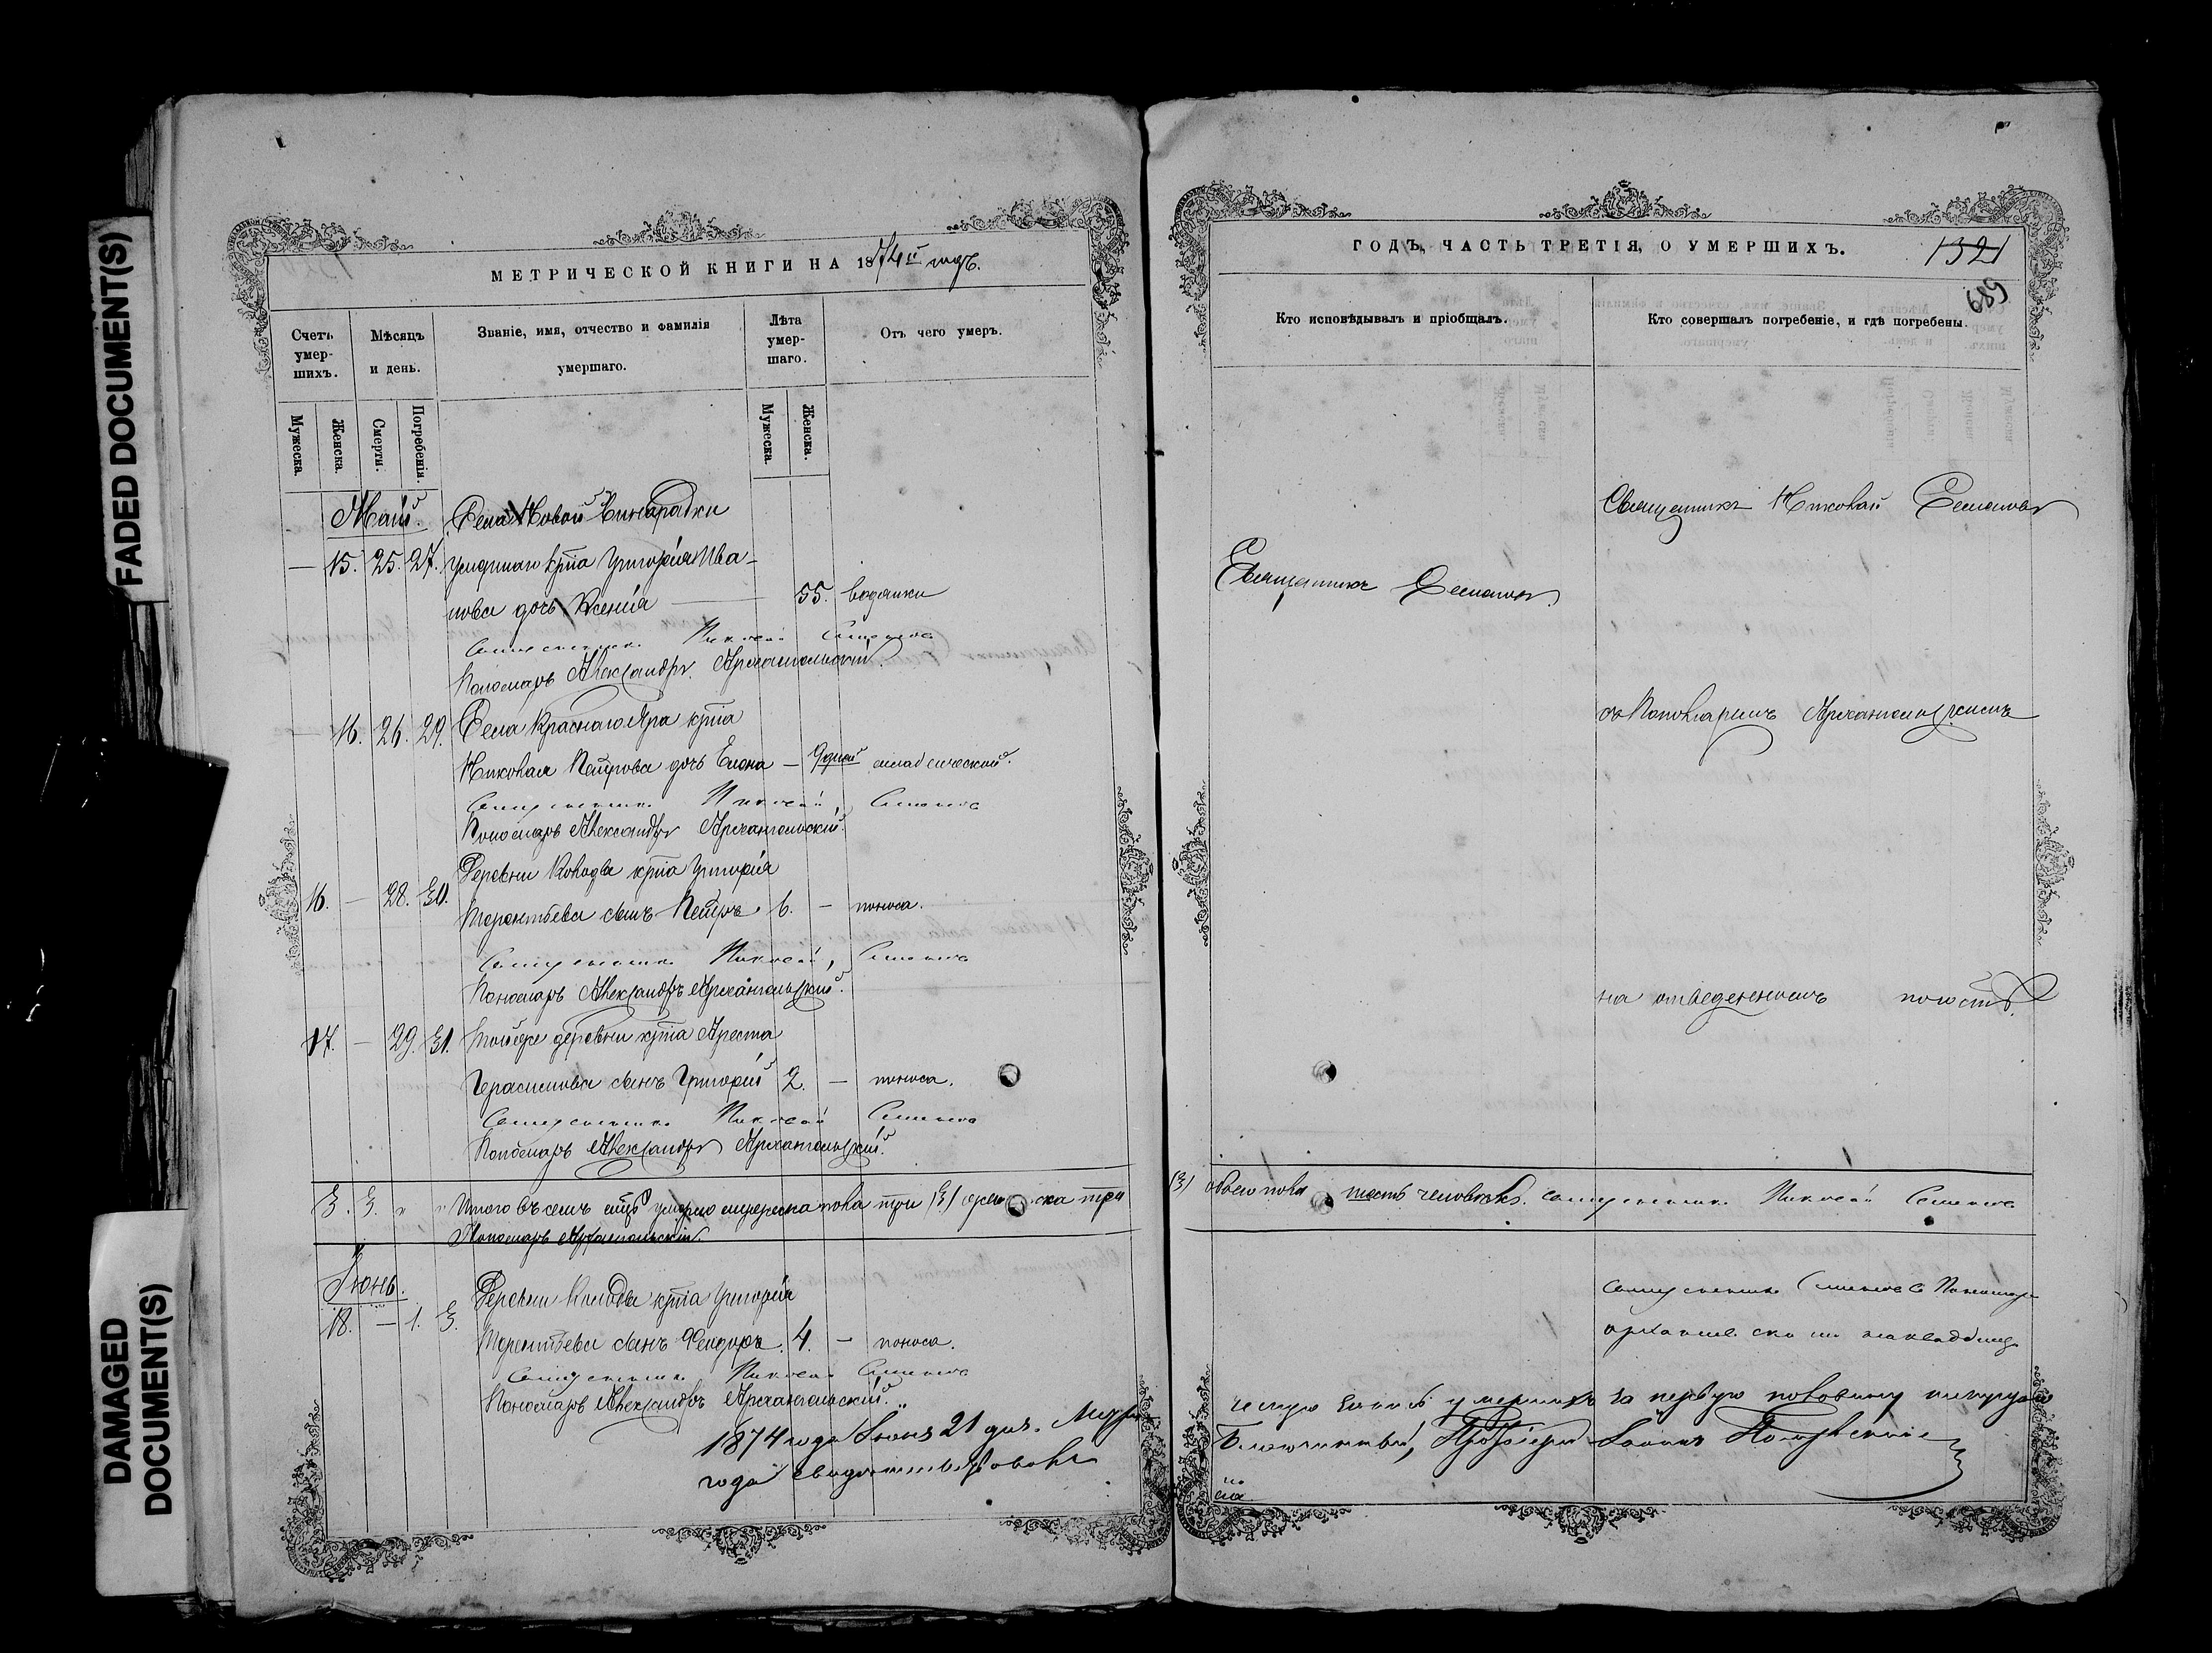 FADED DOCUMENT(S)
DAMAGED
DOCUMENT(S)
МЕТРИЧЕСКОЙ КНИГИ НА 1874й годъ.
Счетъ умер-шихъ.
Мѣсяцъ и день.
Званіе, имя, отчество и фамилія умершаго.
Лѣта умер-шаго.
Отъ чего умеръ.
Мужеска.
Женска.
Смерти.
Погребенія.
Мужеска.
Женска.
Май. Села Новой Бинарадки
— 15. 25. 27. умершаго крт҃а Григорія Ива-
нова дочь Ксенія — 55. водянки
Священникъ Николай Семеновъ
Пономарь Александръ Архангельскій.
— 16. 26. 29. Села Краснаго Яра крт҃а
Николая Петрова дочь Елена — 9 дней младенческой.
Священникъ Николай Семеновъ
Пономарь Александръ Архангельскій.
Деревни Колодъ крт҃а Григорія
16. — 28. 30. Терентьева сынъ Петръ 6. — поноса.
Священникъ Николай Семеновъ
Пономарь Александръ Архангельскій.
17. — 29. 31. Той же деревни крт҃а Ареста
Герасимова сынъ Григорій 2. — поноса.
Священникъ Николай Семеновъ
Пономарь Александръ Архангельскій.
3. 3. " " Итого въ семъ мцѣ умерло мужеска пола три (3) женска три
Пономарь Архангельскій
Іюнь. Деревни Колодъ крт҃а Григорія
18. — 1. 3. Терентьева сынъ Феодоръ 4. — поноса.
Священникъ Николай Семеновъ
Пономарь Александръ Архангельскій.
1874 года Іюня 21 дня.
года свидѣтельствовалъ
ГОДЪ, ЧАСТЬ ТРЕТІЯ, О УМЕРШИХЪ.
1321
689
Кто исповѣдывалъ и пріобщалъ.
Кто совершалъ погребеніе, и гдѣ погребены.
Священникъ Николай Семеновъ
Священникъ Семеновъ.
съ Пономаремъ Архангельскимъ
на отведенномъ погостѣ.
(3) обоего пола шесть человѣкъ. Священникъ Николай Семеновъ
Священникъ Семеновъ с Пономар
Архангельскимъ на кладбищѣ
умершихъ за первую половину
Благочинный, Протоіерей Іоаннъ